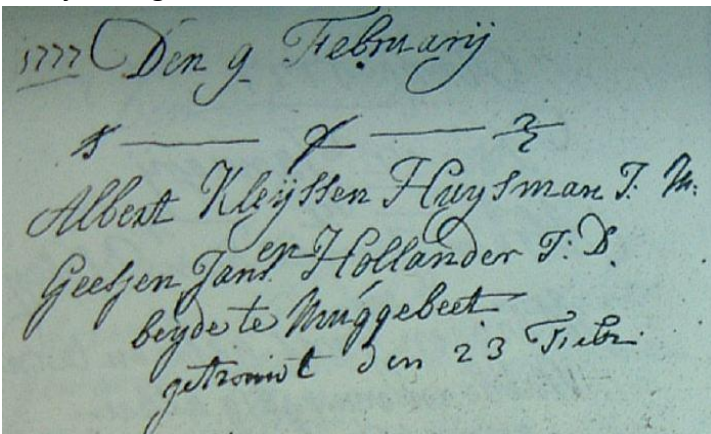 1777 Den 9 Februarij
Albert Kleijssen Huysman J. M.
en
Geesjen Jans Hollander J: D.
beyde te Muggebeet
getrouwt den 23 Febr: